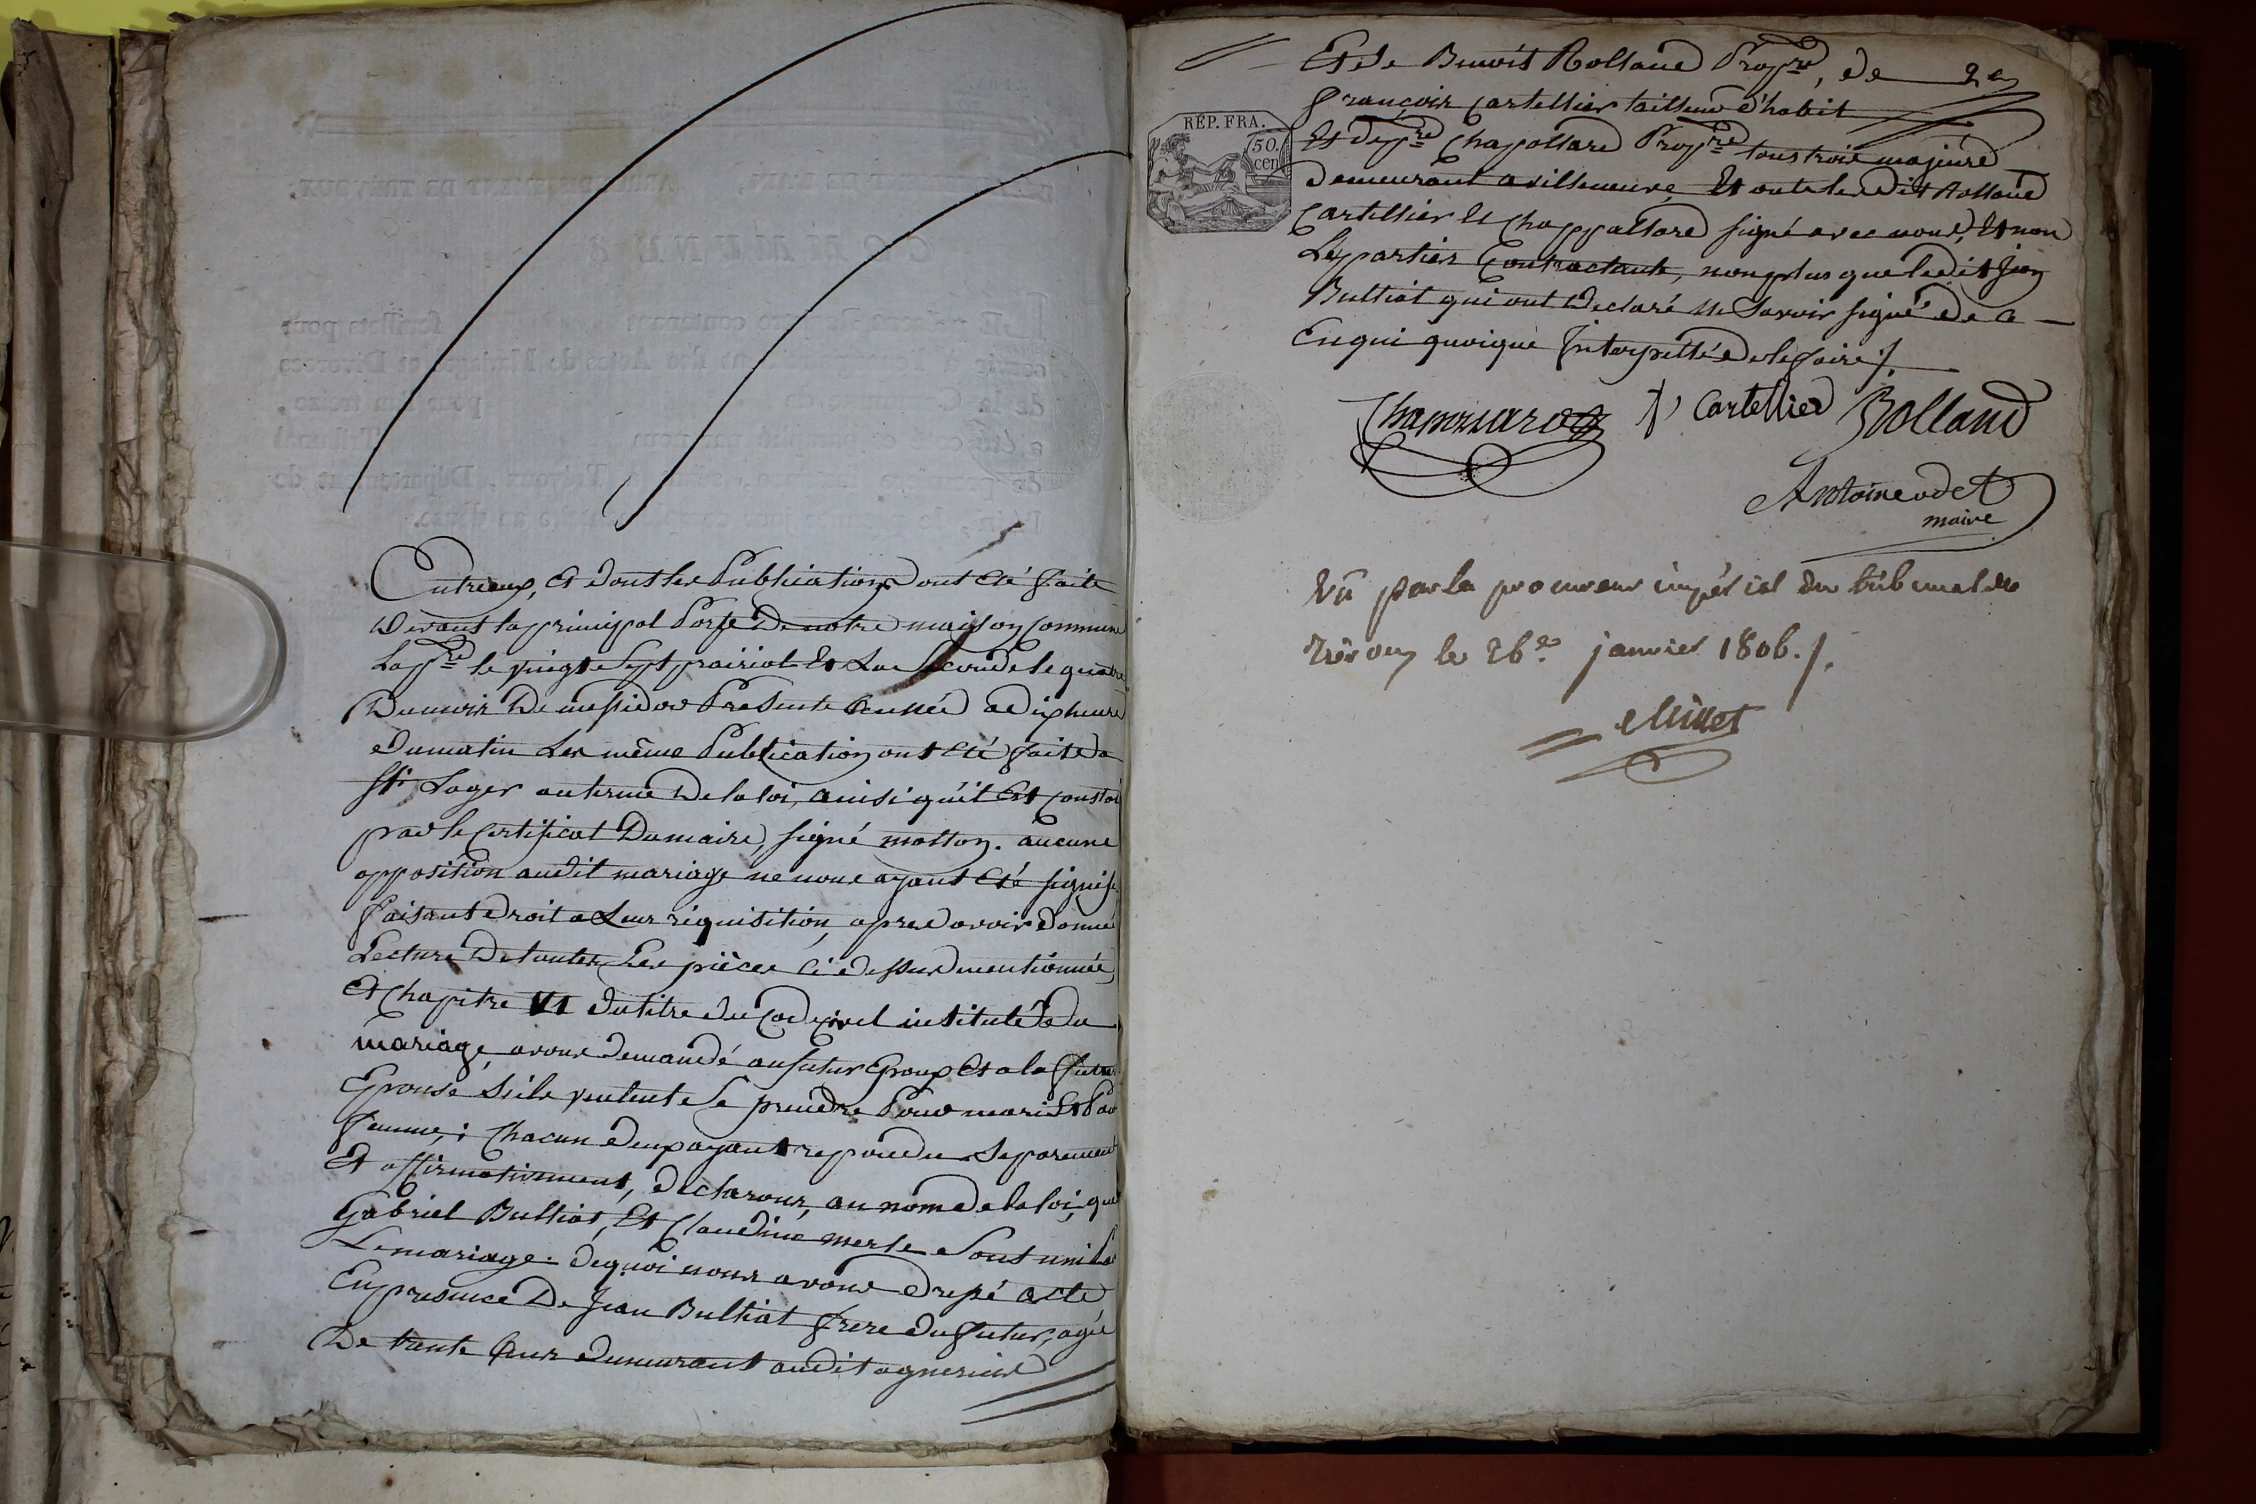 Entrieux, et dont les Publications ont été faite
Devant la principal Porte De notre maison Commune
La p.re le vingt Sept prairial Et La Seconde le quatre
Du mois De messidor Presente Année a dix heure
du matin Les même Publication ont été faite a
St. Lager au terme De la loi, ainsi qu'il Est Constaté
par le Certificat Du maire, signé motton. aucune
opposition audit mariage ne nous ayant été signifié
faisant droit a Leur requisition, apres avoir donné
Lecture De toutes Les pièces ci dessus mentionnée,
et Chapitre VI du titre du Code Civel institulé du
mariage, avons demandé au futur Epoux Et a la futur
Epouse S'ils veulente Se prendre Pour mari Et Pour
femme; Chacun d'eux ayant repondu Separement
Et affirmativement, declarons, au nom de la loi, que
Gabriel Bulliat, Et Claudine merle Sont uni
Le mariage. de quoi nous avons dressé acte
En presence De Jean Bulliat frere du futur, agé
De trente Ans demeurant audit agnerins
Et de Benoit Rolland Prop.re, de
françois Cartellier tailleur d'habit
Et de p.re Chapollard Prop.re tous trois majeurs
Demeurant a villeneuve, Et ont lesdits Rolland
Cartellier Et Chappollard signé avec nous, Et non
Les parties Contractante, non plus que ledit Jean
Bulliat qui ont declaré ne Savoir signé de ce
Enqui quoique Interpellé de le faire ./.
REP. FRA.
50.
cen.
Chapollard f Cartellier Rolland
Antoine odet
maire
Vû par le procureur impérial du tribunal de
Trévoux le 26.e janvier 1806./.